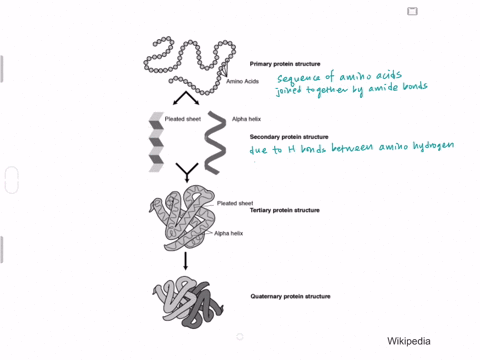 Primary protein structure
Sequence of amino acids
Amino Acids
joined together by amide bonds
Pleated sheet
Alpha helix
Secondary protein structure
due to H bonds between amino hydrogen
Pleated sheet
Tertiary protein structure
Alpha helix
Quaternary protein structure
Wikipedia